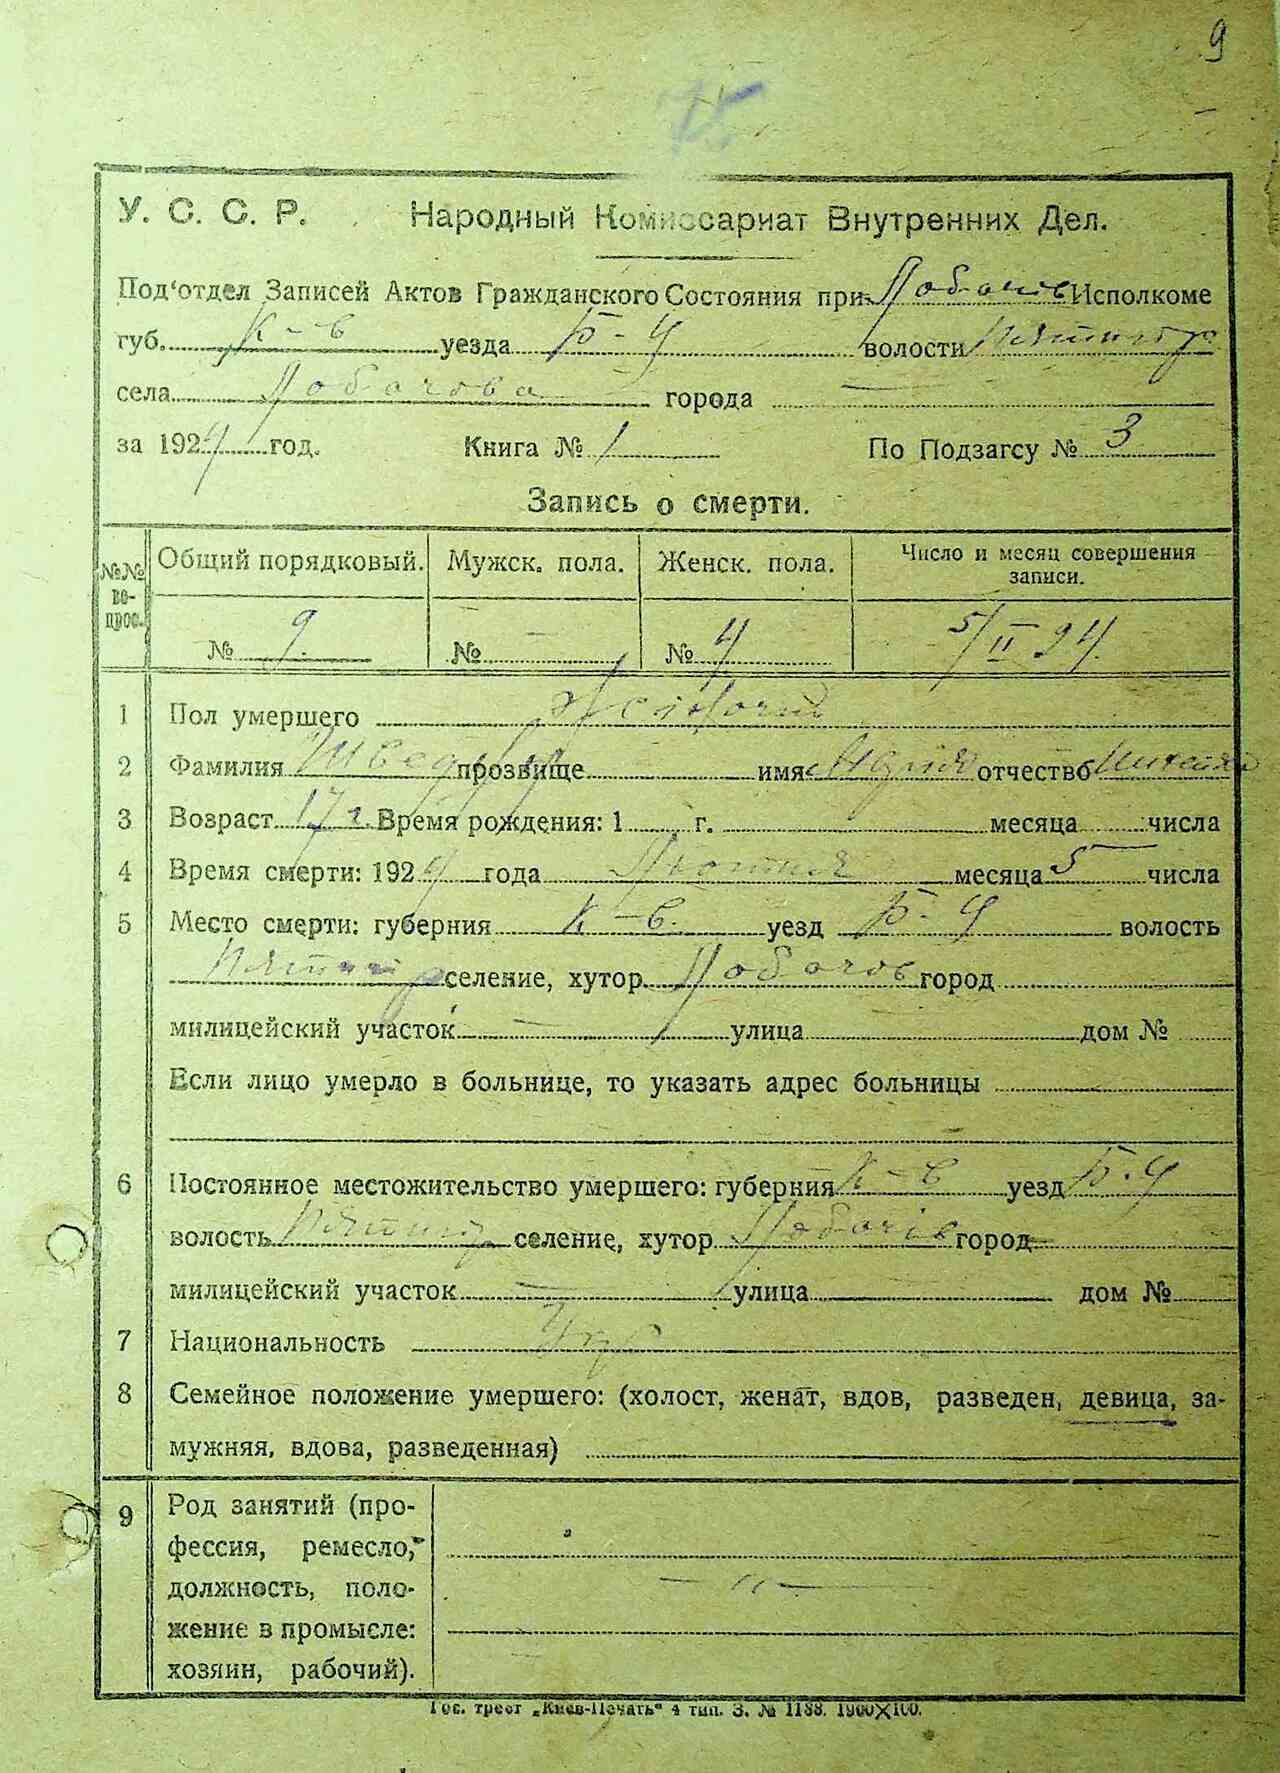 9
У. С. С. Р. Народный Комиссариат Внутренних Дел.
Под‘отдел Записей Актов Гражданского Состояния при Исполкоме
губ. К-в уезда Б-Ц волости
села Лобачева города —
за 1924 год. Книга № 1 По Подзагсу № 3
Запись о смерти.
№№ во-прос. Общий порядковый. Мужск. пола. Женск. пола. Число и месяц совершения записи.
№ 9. № — № 4 5/II 24.
1 Пол умершего Жіночий
2 Фамилия прозвище имя отчество
3 Возраст 17 г. Время рождения: 1 г. месяца числа
4 Время смерти: 1924 года Лютня месяца 5 числа
5 Место смерти: губерния К-в. уезд Б-Ц волость
селение, хутор Лобачов город
милицейский участок — улица дом №
Если лицо умерло в больнице, то указать адрес больницы
6 Постоянное местожительство умершего: губерния К-в уезд Б-Ц
волость селение, хутор Лобачів город
милицейский участок — улица дом №
7 Национальность Укр
8 Семейное положение умершего: (холост, женат, вдов, разведен, девица, за-
мужняя, вдова, разведенная)
9 Род занятий (про-
фессия, ремесло,
должность, поло-
жение в промысле: — „ —
хозяин, рабочий).
Гос. трест „Киев-Печать“ 4 тип. З. № 1188. 1900X100.